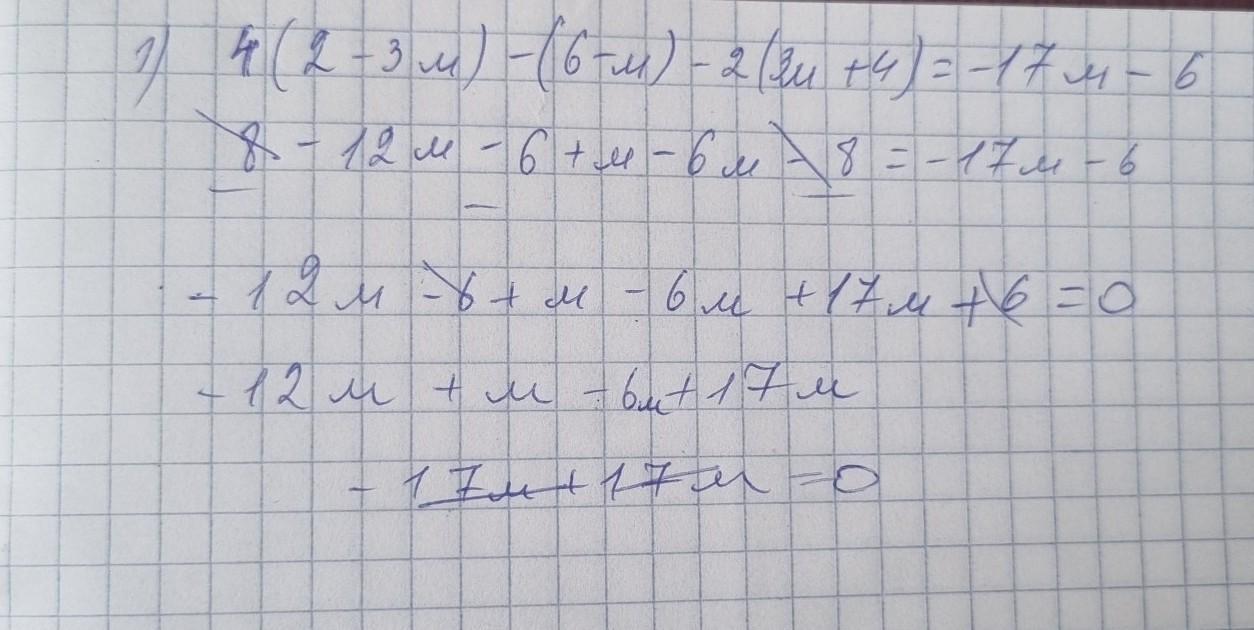 1) 4(2-3м)-(6-м)-2(3м+4)=-17м-6
8-12м-6+м-6м-8=-17м-6
-12м-6+м-6м+17м+6=0
-12м+м-6м+17м
-17м+17м=0